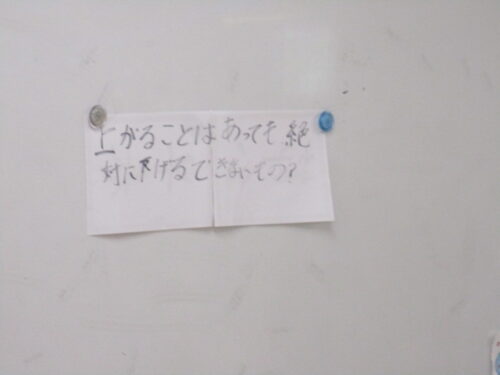 上がることはあっても絶
対に下げるできないもの?